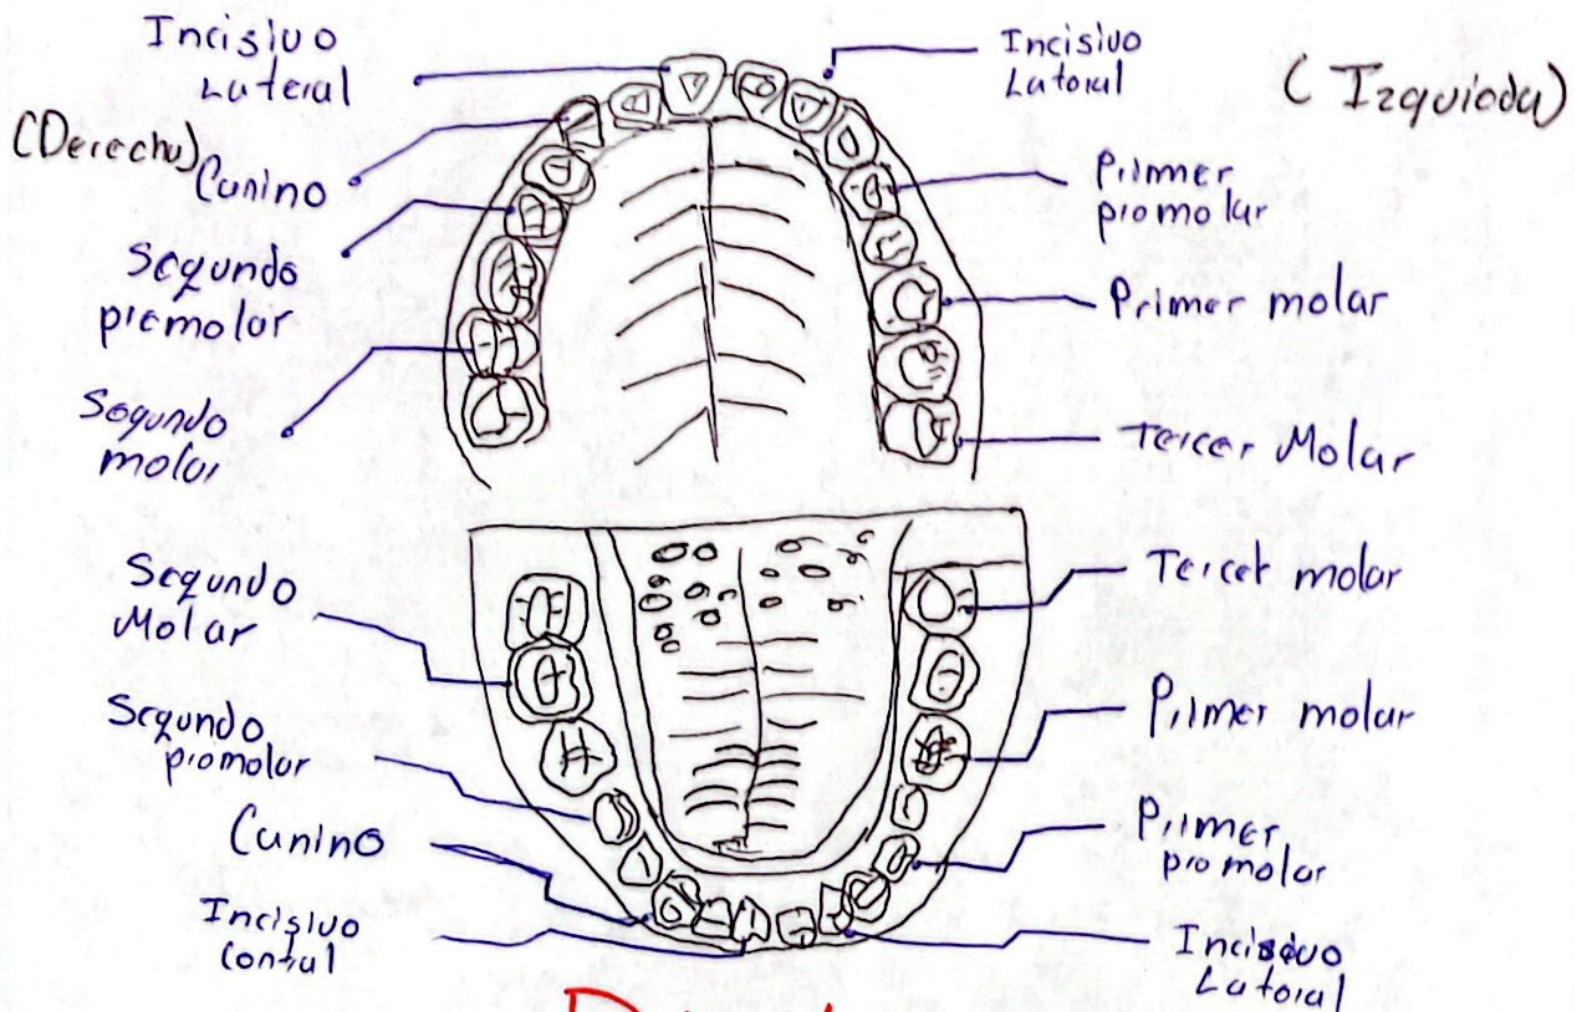 Incisivo
Lateral
(Derecha)
Canino
Segundo
premolar
Segundo
molar
Segundo
Molar
Segundo
premolar
Canino
Incisivo
Central
Incisivo
Lateral
(Izquieda)
Primmer
premolar
Primer molar
Tercer Molar
Tercer molar
Primer molar
Primer
premolar
Incisivo
Lateral